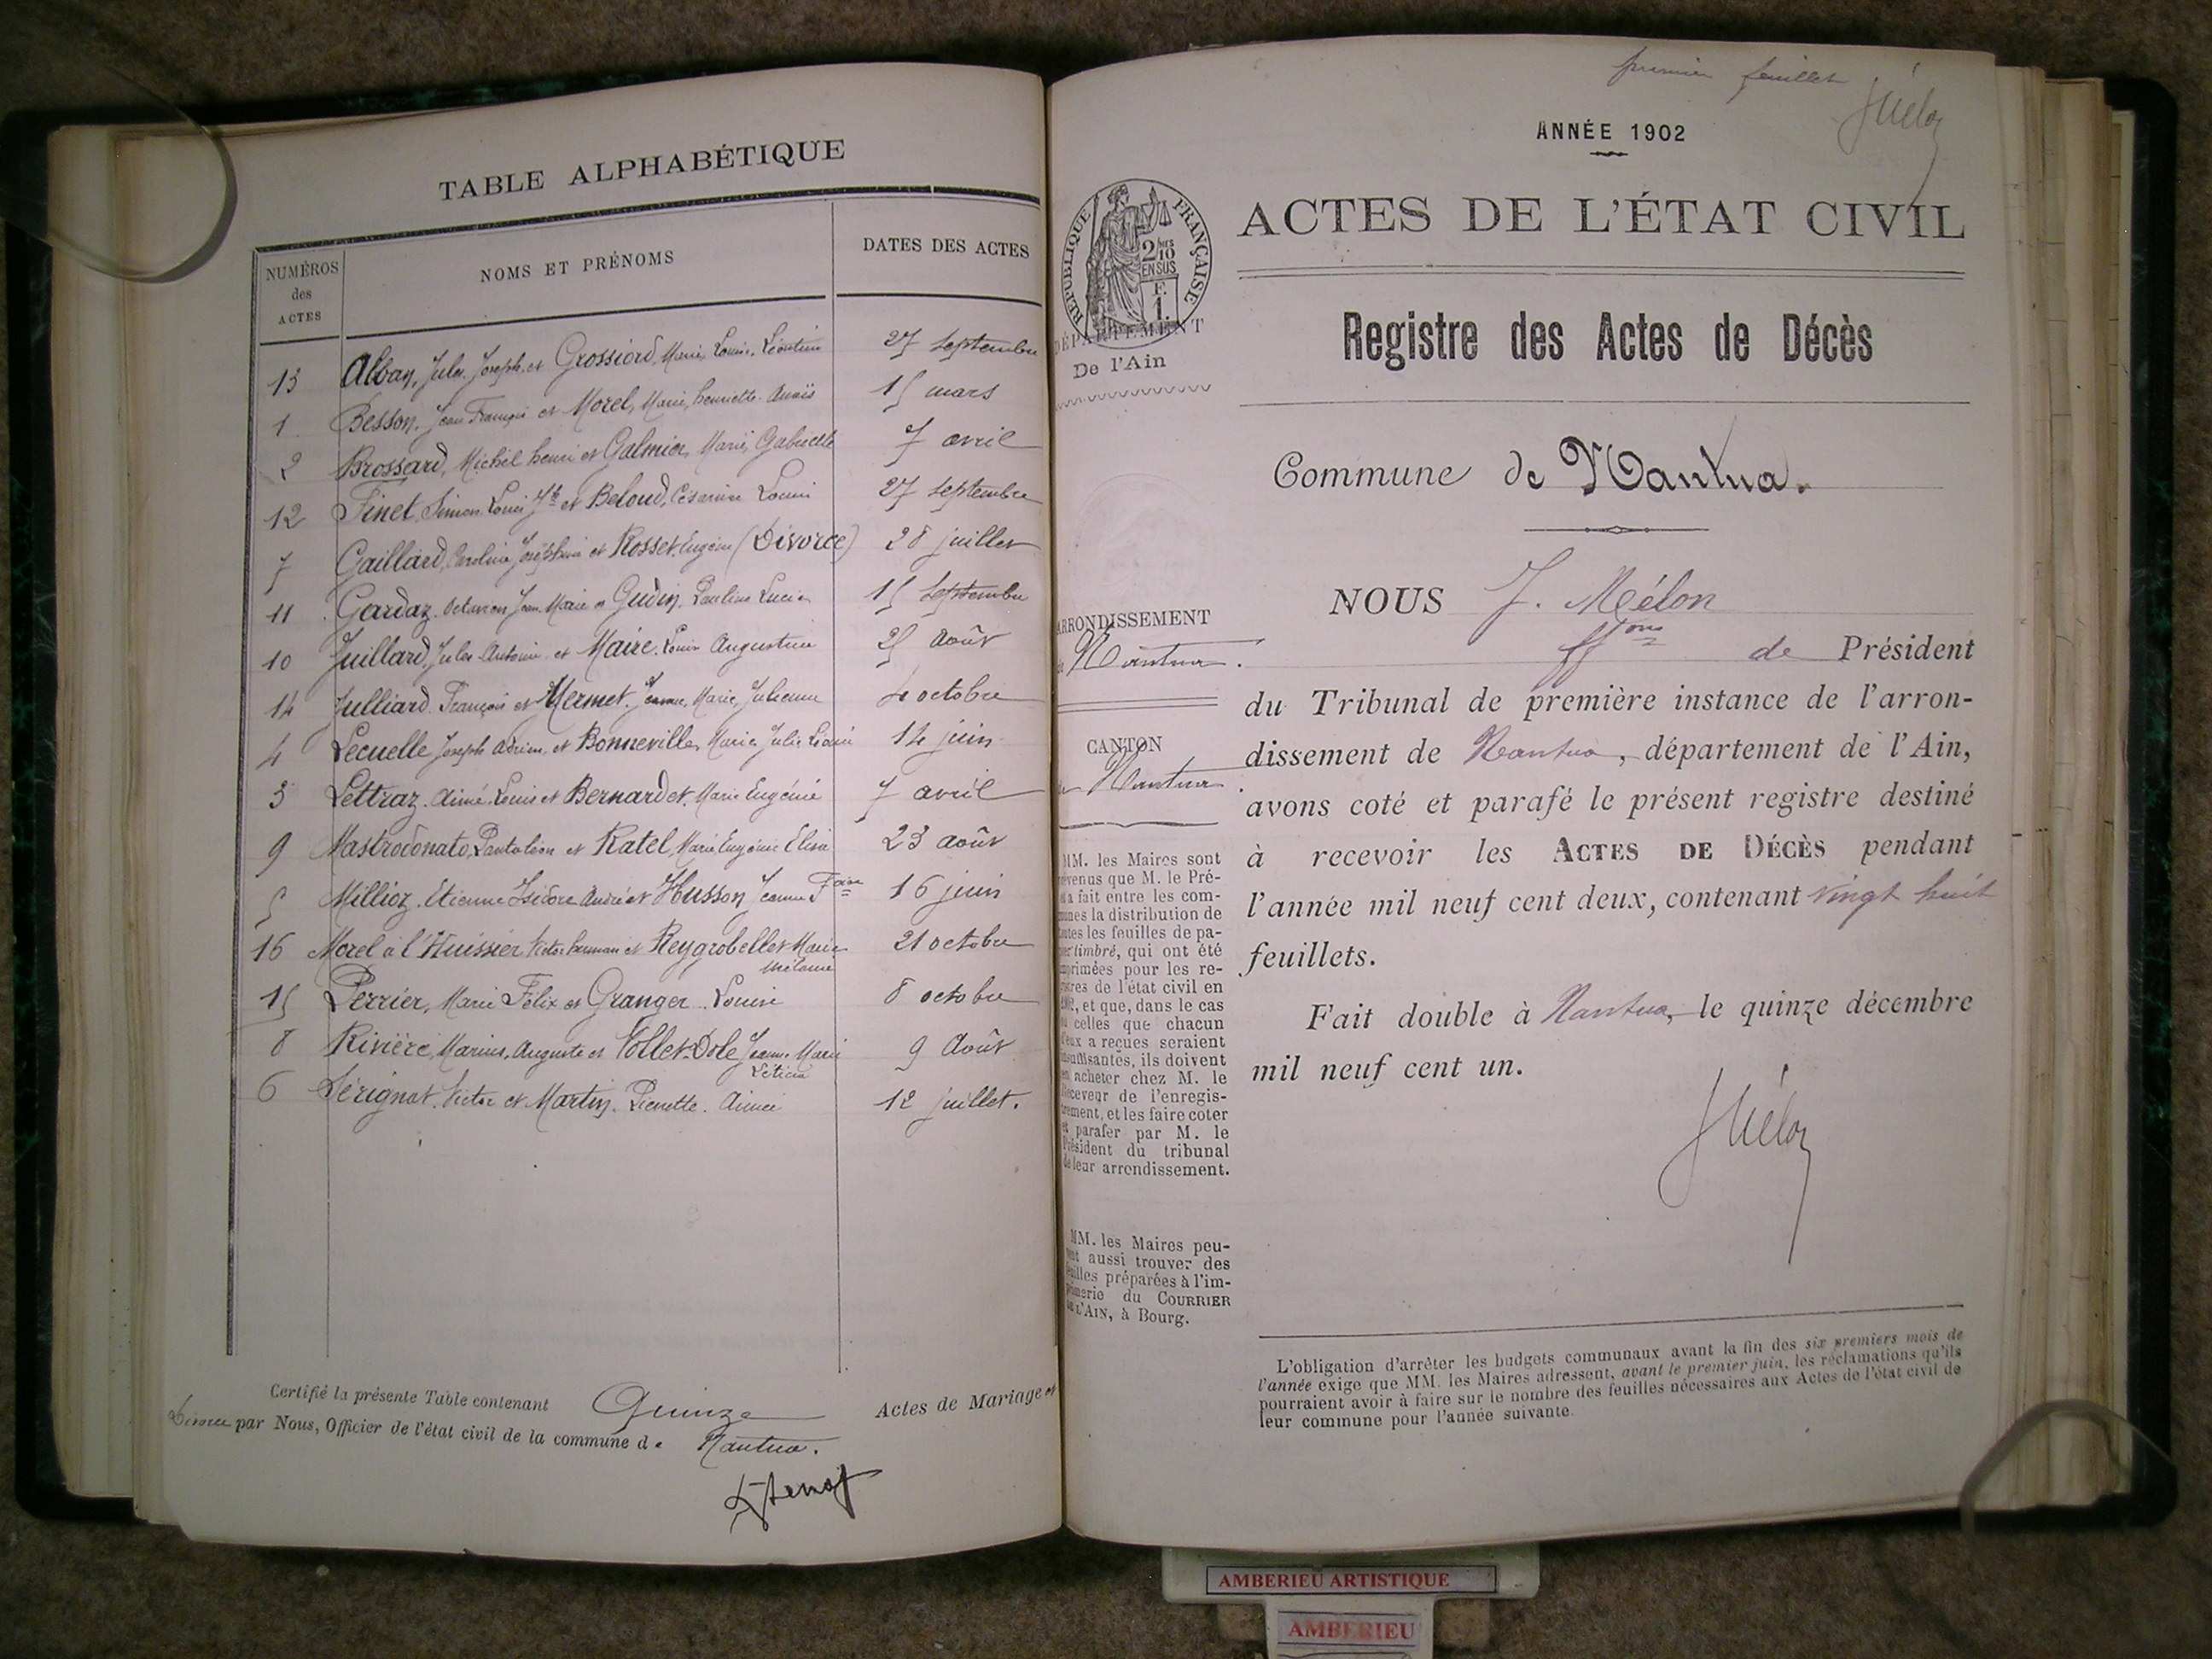 TABLE ALPHABÉTIQUE
NUMÉROS des ACTES
NOMS ET PRÉNOMS
DATES DES ACTES
13 Alban, Jules Joseph et Grossiord, Marie, Louise, Léontine 27 Septembre
1 Besson, Jean François et Morel, Marie, henriette Anaïs 15 mars
2 Brossard, Michel henri et Galmier, Marie, Gabrielle 7 avril
12 Finet, Simon Louis Jh et Beloud, Césarine Louise 27 Septembre
7 Gaillard, Caroline Joséphine et Rosset, Eugène (Divorce) 28 juillet
11 Gardaz, Jean Marie et Gudin, Pauline Lucie 15 Septembre
10 Juillard, Jules Antoine et Maire, Louise Augustine 25 août
14 Julliard, François et Mermet, Jeanne, Marie, Julienne 4 octobre
4 Lecuelle Joseph Adrien et Bonneville, Marie Julie 14 juin
3 Lettraz, Aimé Louis et Bernardet, Marie Eugénie 7 avril
9 Mastrodonato, Pantaléon et Ratel, Marie Eugénie Elisa 23 août
5 Millioz, Etienne Isidore André et Husson Jeanne Foise 16 juin
16 Morel à l'Huissier Victor herman et Reygrobellet Marie 21 octobre
Mélanie
15 Perrier, Marie Félix et Granger Louise 8 octobre
8 Rivière, Marius, Auguste et Collet-Dole Jeanne Marie 9 Août
Léticia
6 Sérignat, Victor et Martin, Pierrette Aimée 12 juillet.
Certifié la présente Table contenant Quinze Actes de Mariage et
Divorce par Nous, Officier de l'état civil de la commune de Nantua.
premier feuillet
JMélon
ANNÉE 1902
ACTES DE L'ÉTAT CIVIL
RÉPUBLIQUE FRANÇAISE
2/10
EN SUS
F.
1.
DÉPARTEMENT
De l'Ain
Registre des Actes de Décès
Commune de Nantua.
ARRONDISSEMENT
de Nantua.
CANTON
de Nantua.
MM. les Maires sont
prévenus que M. le Pré-
fet a fait entre les com-
munes la distribution de
toutes les feuilles de pa-
pier timbré, qui ont été
imprimées pour les re-
gistres de l'état civil en
1902, et que, dans le cas
où celles que chacun
d'eux a reçues seraient
insuffisantes, ils doivent
en acheter chez M. le
Receveur de l'enregis-
trement, et les faire coter
et parafer par M. le
Président du tribunal
de leur arrondissement.
MM. les Maires peu-
vent aussi trouver des
feuilles préparées à l'im-
primerie du COURRIER
DE L'AIN, à Bourg.
NOUS J. Mélon
ffons de Président
du Tribunal de première instance de l'arron-
dissement de Nantua, département de l'Ain,
avons coté et parafé le présent registre destiné
à recevoir les ACTES DE DÉCÈS pendant
l'année mil neuf cent deux, contenant vingt huit
feuillets.
Fait double à Nantua, le quinze décembre
mil neuf cent un.
JMélon
L'obligation d'arrêter les budgets communaux avant la fin des six premiers mois de
l'année exige que MM. les Maires adressent, avant le premier juin, les réclamations qu'ils
pourraient avoir à faire sur le nombre des feuilles nécessaires aux Actes de l'état civil de
leur commune pour l'année suivante.
AMBERIEU ARTISTIQUE
AMBERIEU